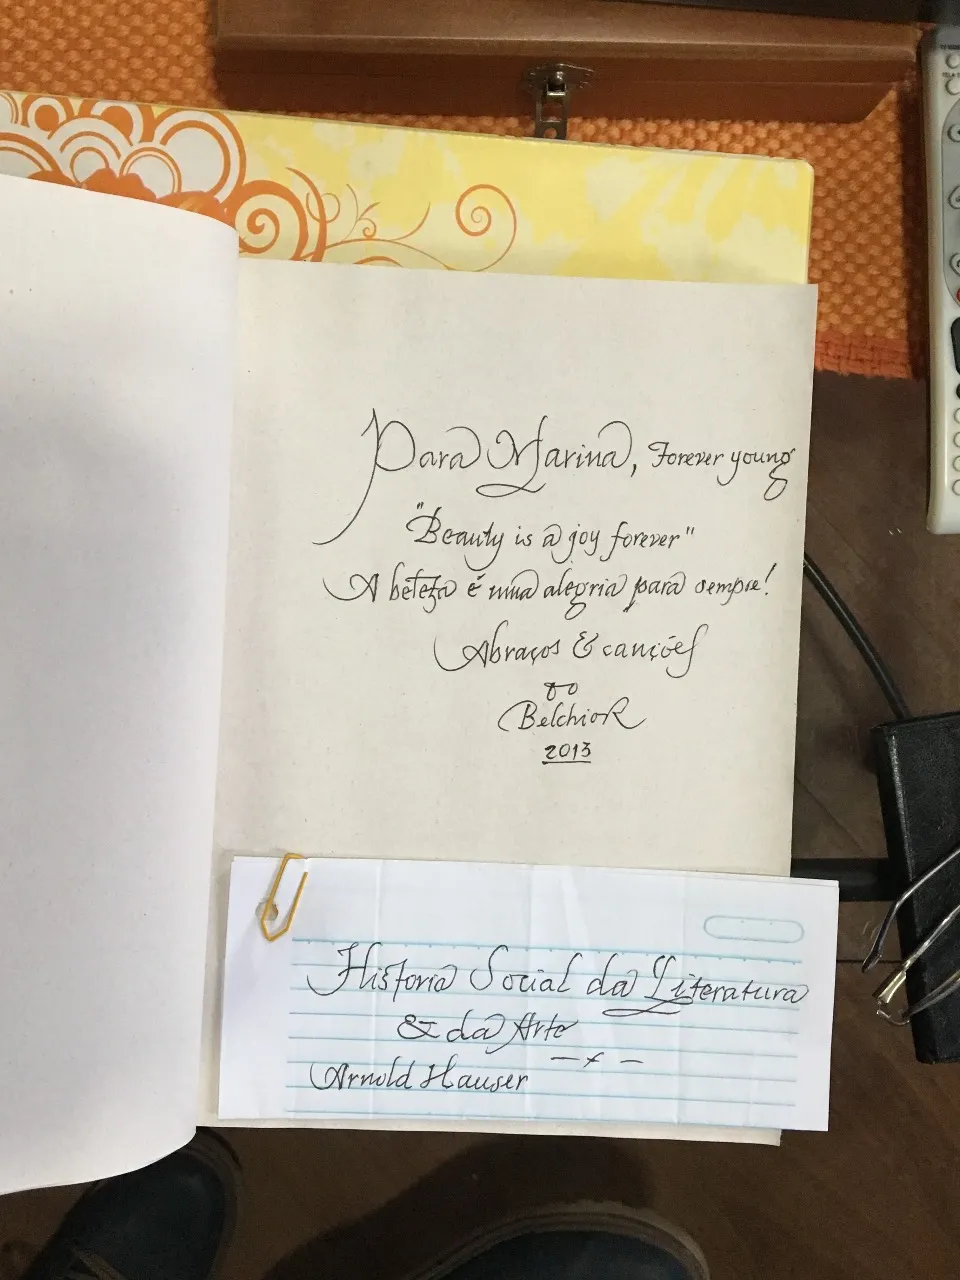 Para Marina, Forever young
"Beauty is a joy forever"
A beleza é uma alegria para sempre!
Abraços & canções
do
Belchior
2013
História Social da Literatura
& da Arte
— x —
Arnold Hauser